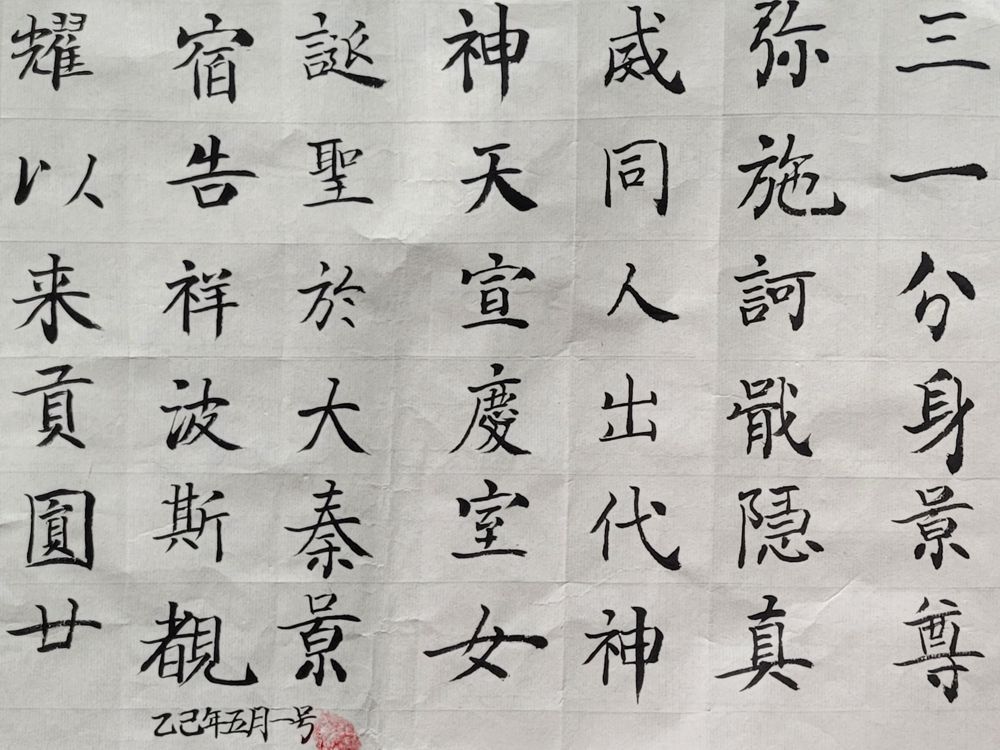 三一分身景尊
弥施訶戢隱真
威同人出代神
神天宣慶室女
誕聖於大秦景
宿告祥波斯覩
耀以来貢圓廿
乙己年五月一号